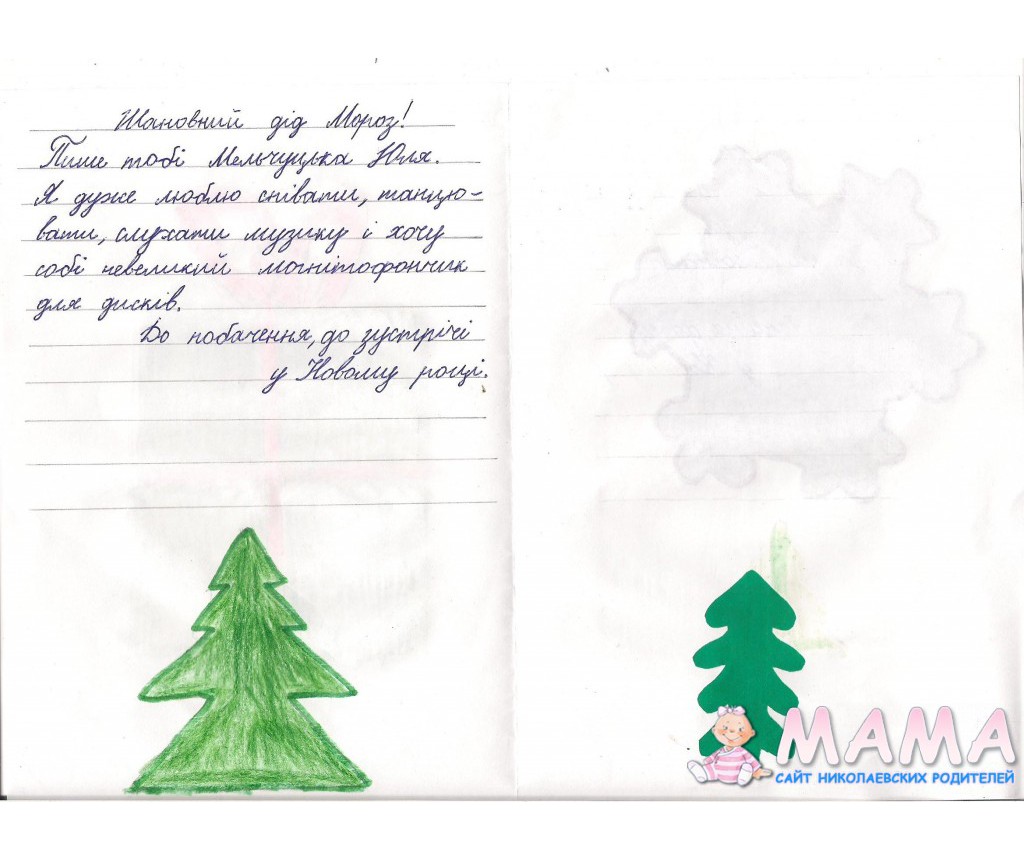 Шановний дід Мороз!
Пише тобі Мельчуцька Юля.
Я дуже люблю співати, танцю-
вати, слухати музику і хочу
собі невеликий магнітофончик
для дисків.
До побачення, до зустрічі
у Новому році.
МАМА
САЙТ НИКОЛАЕВСКИХ РОДИТЕЛЕЙ